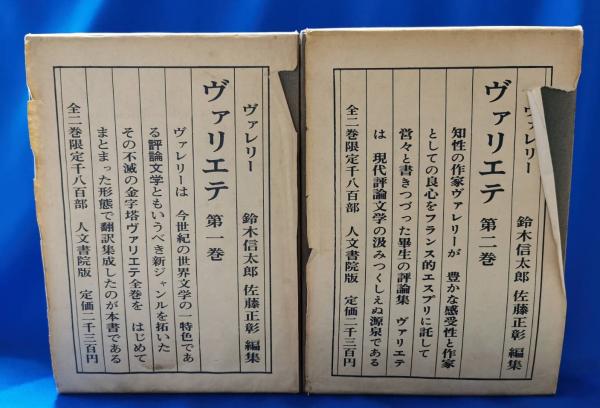 ヴァレリー 鈴木信太郎 佐藤正彰 編集
ヴァリエテ 第一巻
ヴァレリーは 今世紀の世界文学の一特色であ
る評論文学ともいうべき新ジャンルを拓いた
その不滅の金字塔ヴァリエテ全巻を はじめて
まとまった形態で翻訳集成したのが本書である
全二巻限定千八百部 人文書院版 定価二千三百円
ヴァレリー 鈴木信太郎 佐藤正彰 編集
ヴァリエテ 第二巻
知性の作家ヴァレリーが 豊かな感受性と作家
としての良心をフランス的エスプリに託して
営々と書きつづった畢生の評論集 ヴァリエテ
は 現代評論文学の汲みつくしえぬ源泉である
全二巻限定千八百部 人文書院版 定価二千三百円